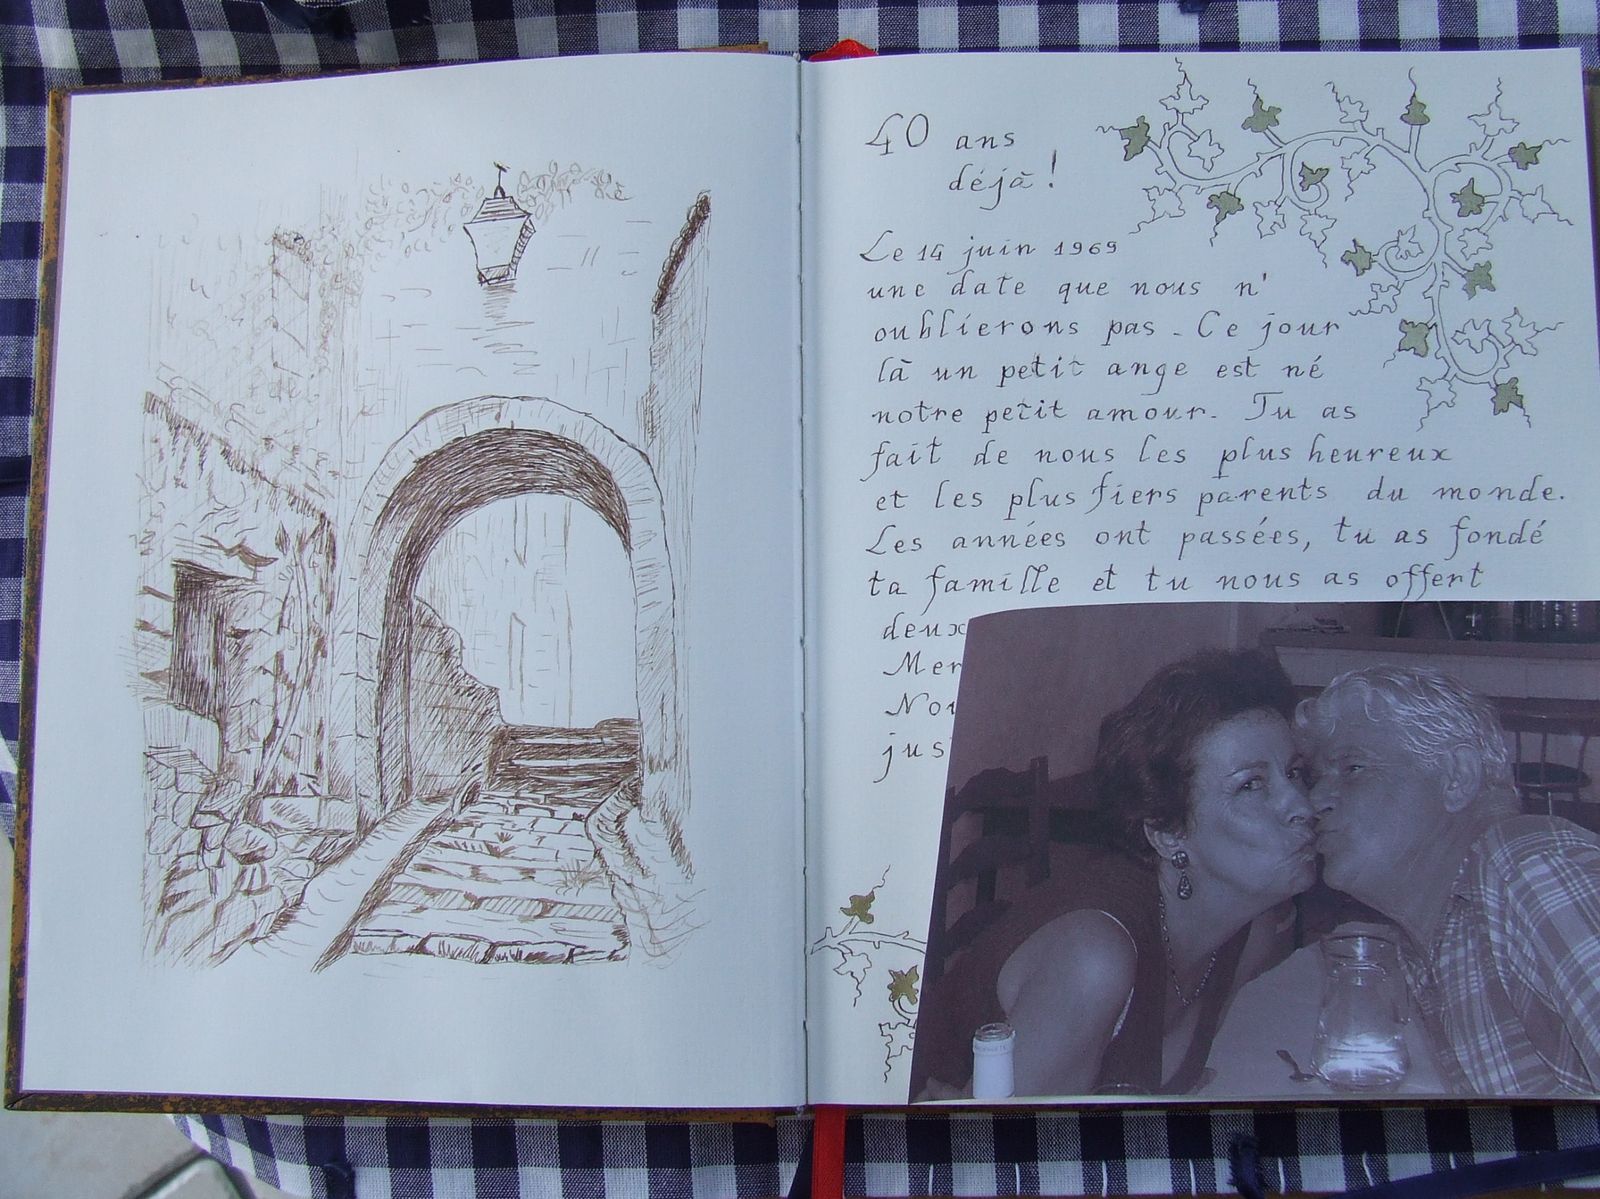 40 ans
déjà !
Le 14 juin 1969
une date que nous n'
oublierons pas - Ce jour
là un petit ange est né
notre petit amour. Tu as
fait de nous les plus heureux
et les plus fiers parents du monde.
Les années ont passées, tu as fondé
ta famille et tu nous as offert
deux